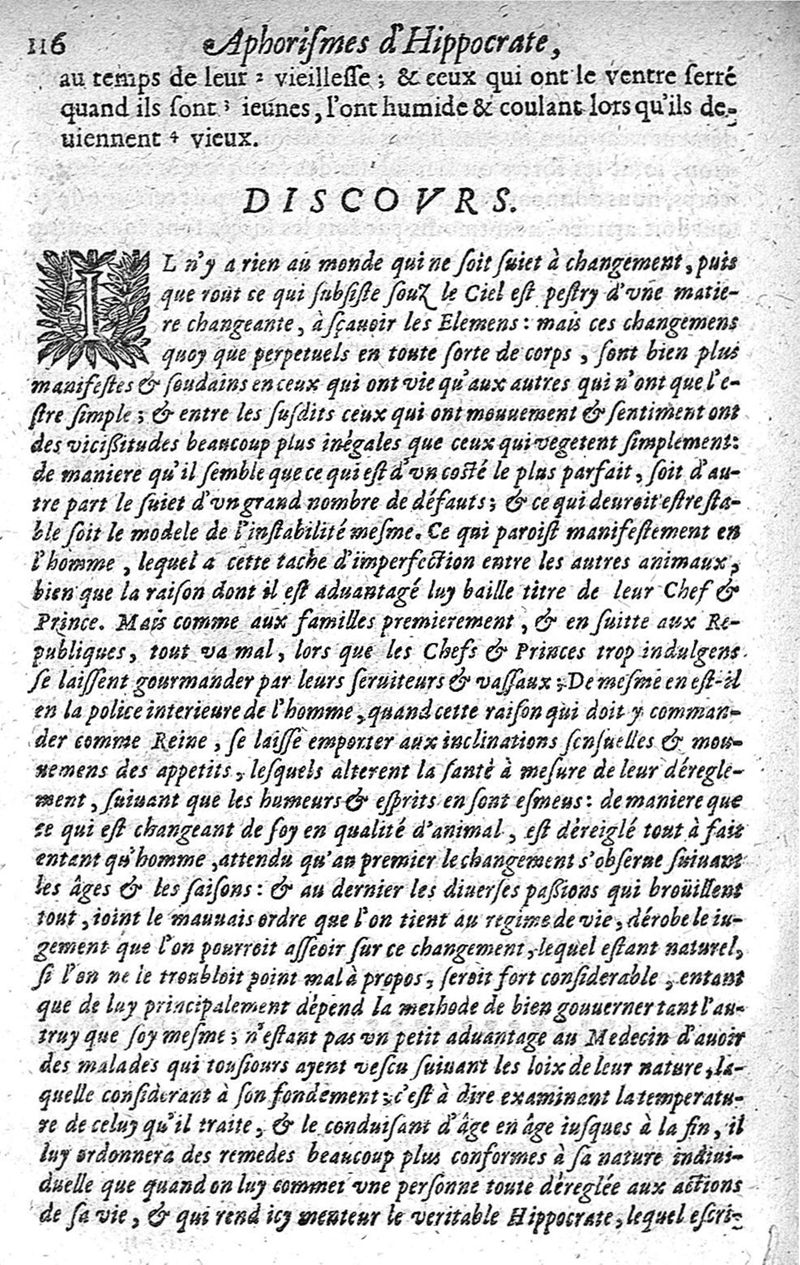 116 Aphoriſmes d'Hippocrate,
au temps de leur ² vieilleſſe ; & ceux qui ont le ventre ſerré
quand ils ſont ³ ieunes, l'ont humide & coulant lors qu'ils de-
uiennent ⁴ vieux.
DISCOVRS.
IL n'y a rien au monde qui ne ſoit ſuiet à changement, puis
que tout ce qui ſubſiſte ſouz le Ciel eſt peſtry d'vne matie-
re changeante, à ſçauoir les Elemens : mais ces changemens
quoy que perpetuels en toute ſorte de corps, ſont bien plus
manifeſtes & ſoudains en ceux qui ont vie qu'aux autres qui n'ont que l'e-
ſtre ſimple ; & entre les ſuſdits ceux qui ont mouuement & ſentiment ont
des viciſſitudes beaucoup plus inégales que ceux qui vegetent ſimplement:
de maniere qu'il ſemble que ce qui eſt d'vn coſté le plus parfait, ſoit d'au-
tre part le ſuiet d'vn grand nombre de défauts; & ce qui deuroit eſtre ſta-
ble ſoit le modele de l'inſtabilité meſme. Ce qui paroiſt manifeſtement en
l'homme, lequel a cette tache d'imperfection entre les autres animaux,
bien que la raiſon dont il eſt aduantagé luy baille titre de leur Chef &
Prince. Mais comme aux familles premierement, & en ſuitte aux Re-
publiques, tout va mal, lors que les Chefs & Princes trop indulgens
ſe laiſſent gourmander par leurs ſeruiteurs & vaſſaux ; De meſme en eſt-il
en la police interieure de l'homme, quand cette raiſon qui doit y comman-
der comme Reine, ſe laiſſe emporter aux inclinations ſenſuelles & mou-
uemens des appetits, leſquels alterent la ſanté à meſure de leur déregle-
ment, ſuiuant que les humeurs & eſprits en ſont eſmeus : de maniere que
ce qui eſt changeant de ſoy en qualité d'animal, eſt déreiglé tout à fait
entant qu'homme, attendu qu'au premier le changement s'obſerue ſuiuant
les âges & les ſaiſons : & au dernier les diuerſes paſſions qui broüillent
tout, ioint le mauuais ordre que l'on tient au regime de vie, dérobe le iu-
gement que l'on pourroit aſſeoir ſur ce changement, lequel eſtant naturel,
ſi l'on ne le troubloit point mal à propos, ſeroit fort conſiderable, entant
que de luy principalement dépend la methode de bien gouuerner tant l'au-
truy que ſoy meſme ; n'eſtant pas vn petit aduantage au Medecin d'auoir
des malades qui touſiours ayent veſcu ſuiuant les loix de leur nature, la-
quelle conſiderant à ſon fondement ; c'eſt à dire examinant la temperatu-
re de celuy qu'il traite, & le conduiſant d'âge en âge iuſques à la fin, il
luy ordonnera des remedes beaucoup plus conformes à ſa nature indiui-
duelle que quand on luy commet vne perſonne toute déreglée aux actions
de ſa vie, & qui rend icy menteur le veritable Hippocrate, lequel eſcri-